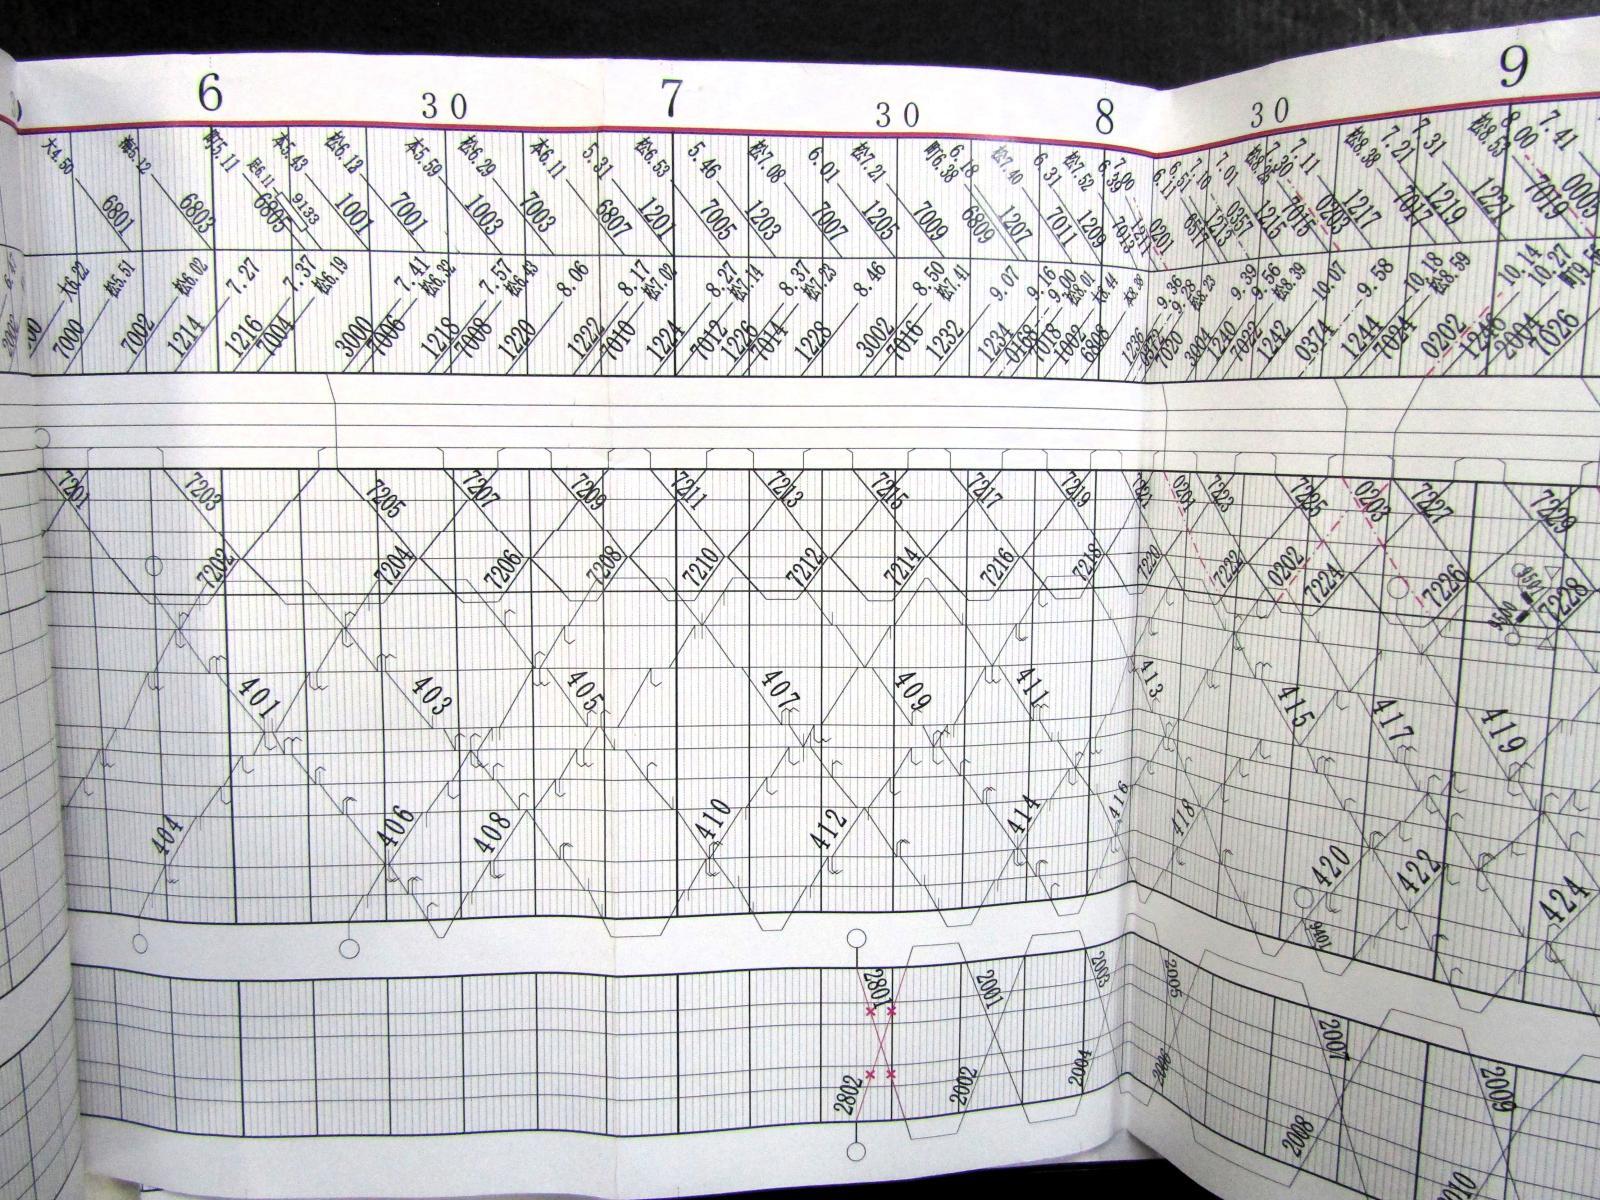 6 30 7 30 8 30 9
大4.50 5.12 5.11 本5.43 松6.18 本5.59 松6.29 本6.11 5.31 松6.53 5.46 松7.08 6.01 松7.21 町6.38 6.18 松7.40 6.31 松7.52 7.01 7.11 松8.38 7.21 7.31 松8.53 8.00 7.41
尾6.11 9133
6801 6803 6805 1001 7001 1003 7003 6807 1201 7005 1203 7007 1205 7009 6809 1207 7011 1209 7013 1211 0201 1213 1215 7015 0203 1217 7017 1219 1221 7019 0005
大6.22 松5.51 松6.02 7.27 7.37 松6.19 7.41 松6.32 7.57 松6.43 8.06 8.17 松7.02 8.27 松7.14 8.37 松7.23 8.46 8.50 松7.41 9.07 9.16 9.00 松8.01 9.36 9.28 松8.23 9.39 9.56 松8.39 10.07 9.58 10.18 松8.59 10.14 10.27
7000 7002 1214 1216 7004 3000 7006 1218 7008 1220 1222 7010 1224 7012 1226 7014 1228 3002 7016 1232 1234 0168 7018 1002 6808 1236 0372 7020 3004 1240 7022 1242 0374 1244 7024 0202 1246 2004 7026
7201 7203 7205 7207 7209 7211 7213 7215 7217 7219 7221 0201 7223 7225 0203 7227 7229
7202 7204 7206 7208 7210 7212 7214 7216 7218 7220 7222 0202 7224 7226 9500 9501 7228
401 403 405 407 409 411 413 415 417 419
404 406 408 410 412 414 416 418 420 422 424
9401
2801 2001 2003 2005 2007 2009
2802 2002 2004 2006 2008